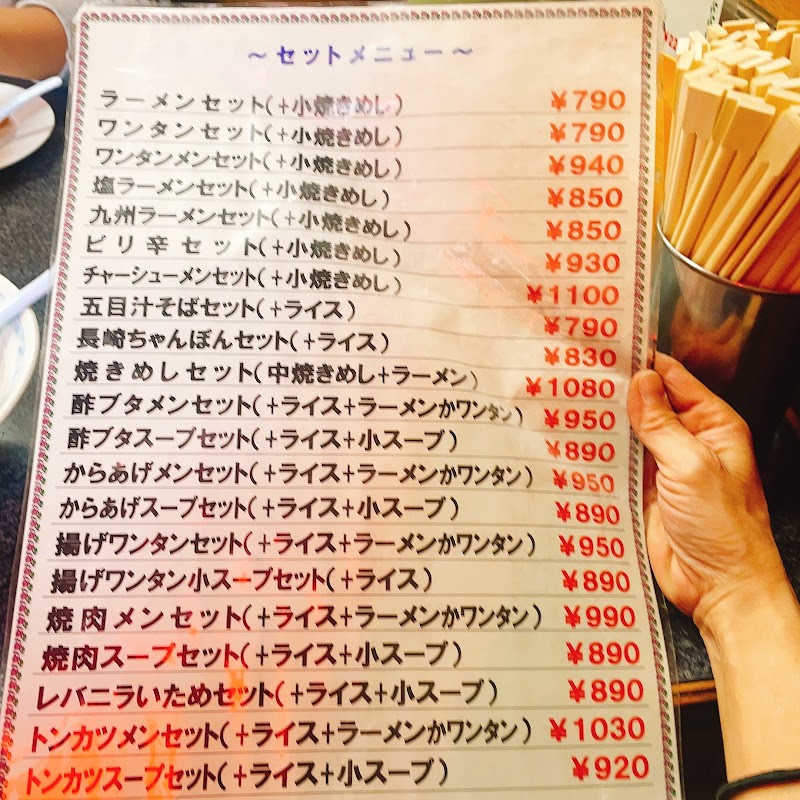 ～セットメニュー～
ラーメンセット(+小焼きめし) ¥790
ワンタンセット(+小焼きめし) ¥790
ワンタンメンセット(+小焼きめし) ¥940
塩ラーメンセット(+小焼きめし) ¥850
九州ラーメンセット(+小焼きめし) ¥850
ピリ辛セット(+小焼きめし) ¥930
チャーシューメンセット(+小焼きめし) ¥1100
五目汁そばセット(+ライス) ¥790
長崎ちゃんぽんセット(+ライス) ¥830
焼きめしセット(中焼きめし+ラーメン) ¥1080
酢ブタメンセット(+ライス+ラーメンかワンタン) ¥950
酢ブタスープセット(+ライス+小スープ) ¥890
からあげメンセット(+ライス+ラーメンかワンタン) ¥950
からあげスープセット(+ライス+小スープ) ¥890
揚げワンタンセット(+ライス+ラーメンかワンタン) ¥950
揚げワンタン小スープセット(+ライス) ¥890
焼肉メンセット(+ライス+ラーメンかワンタン) ¥990
焼肉スープセット(+ライス+小スープ) ¥890
レバニラいためセット(+ライス+小スープ) ¥890
トンカツメンセット(+ライス+ラーメンかワンタン) ¥1030
トンカツスープセット(+ライス+小スープ) ¥920